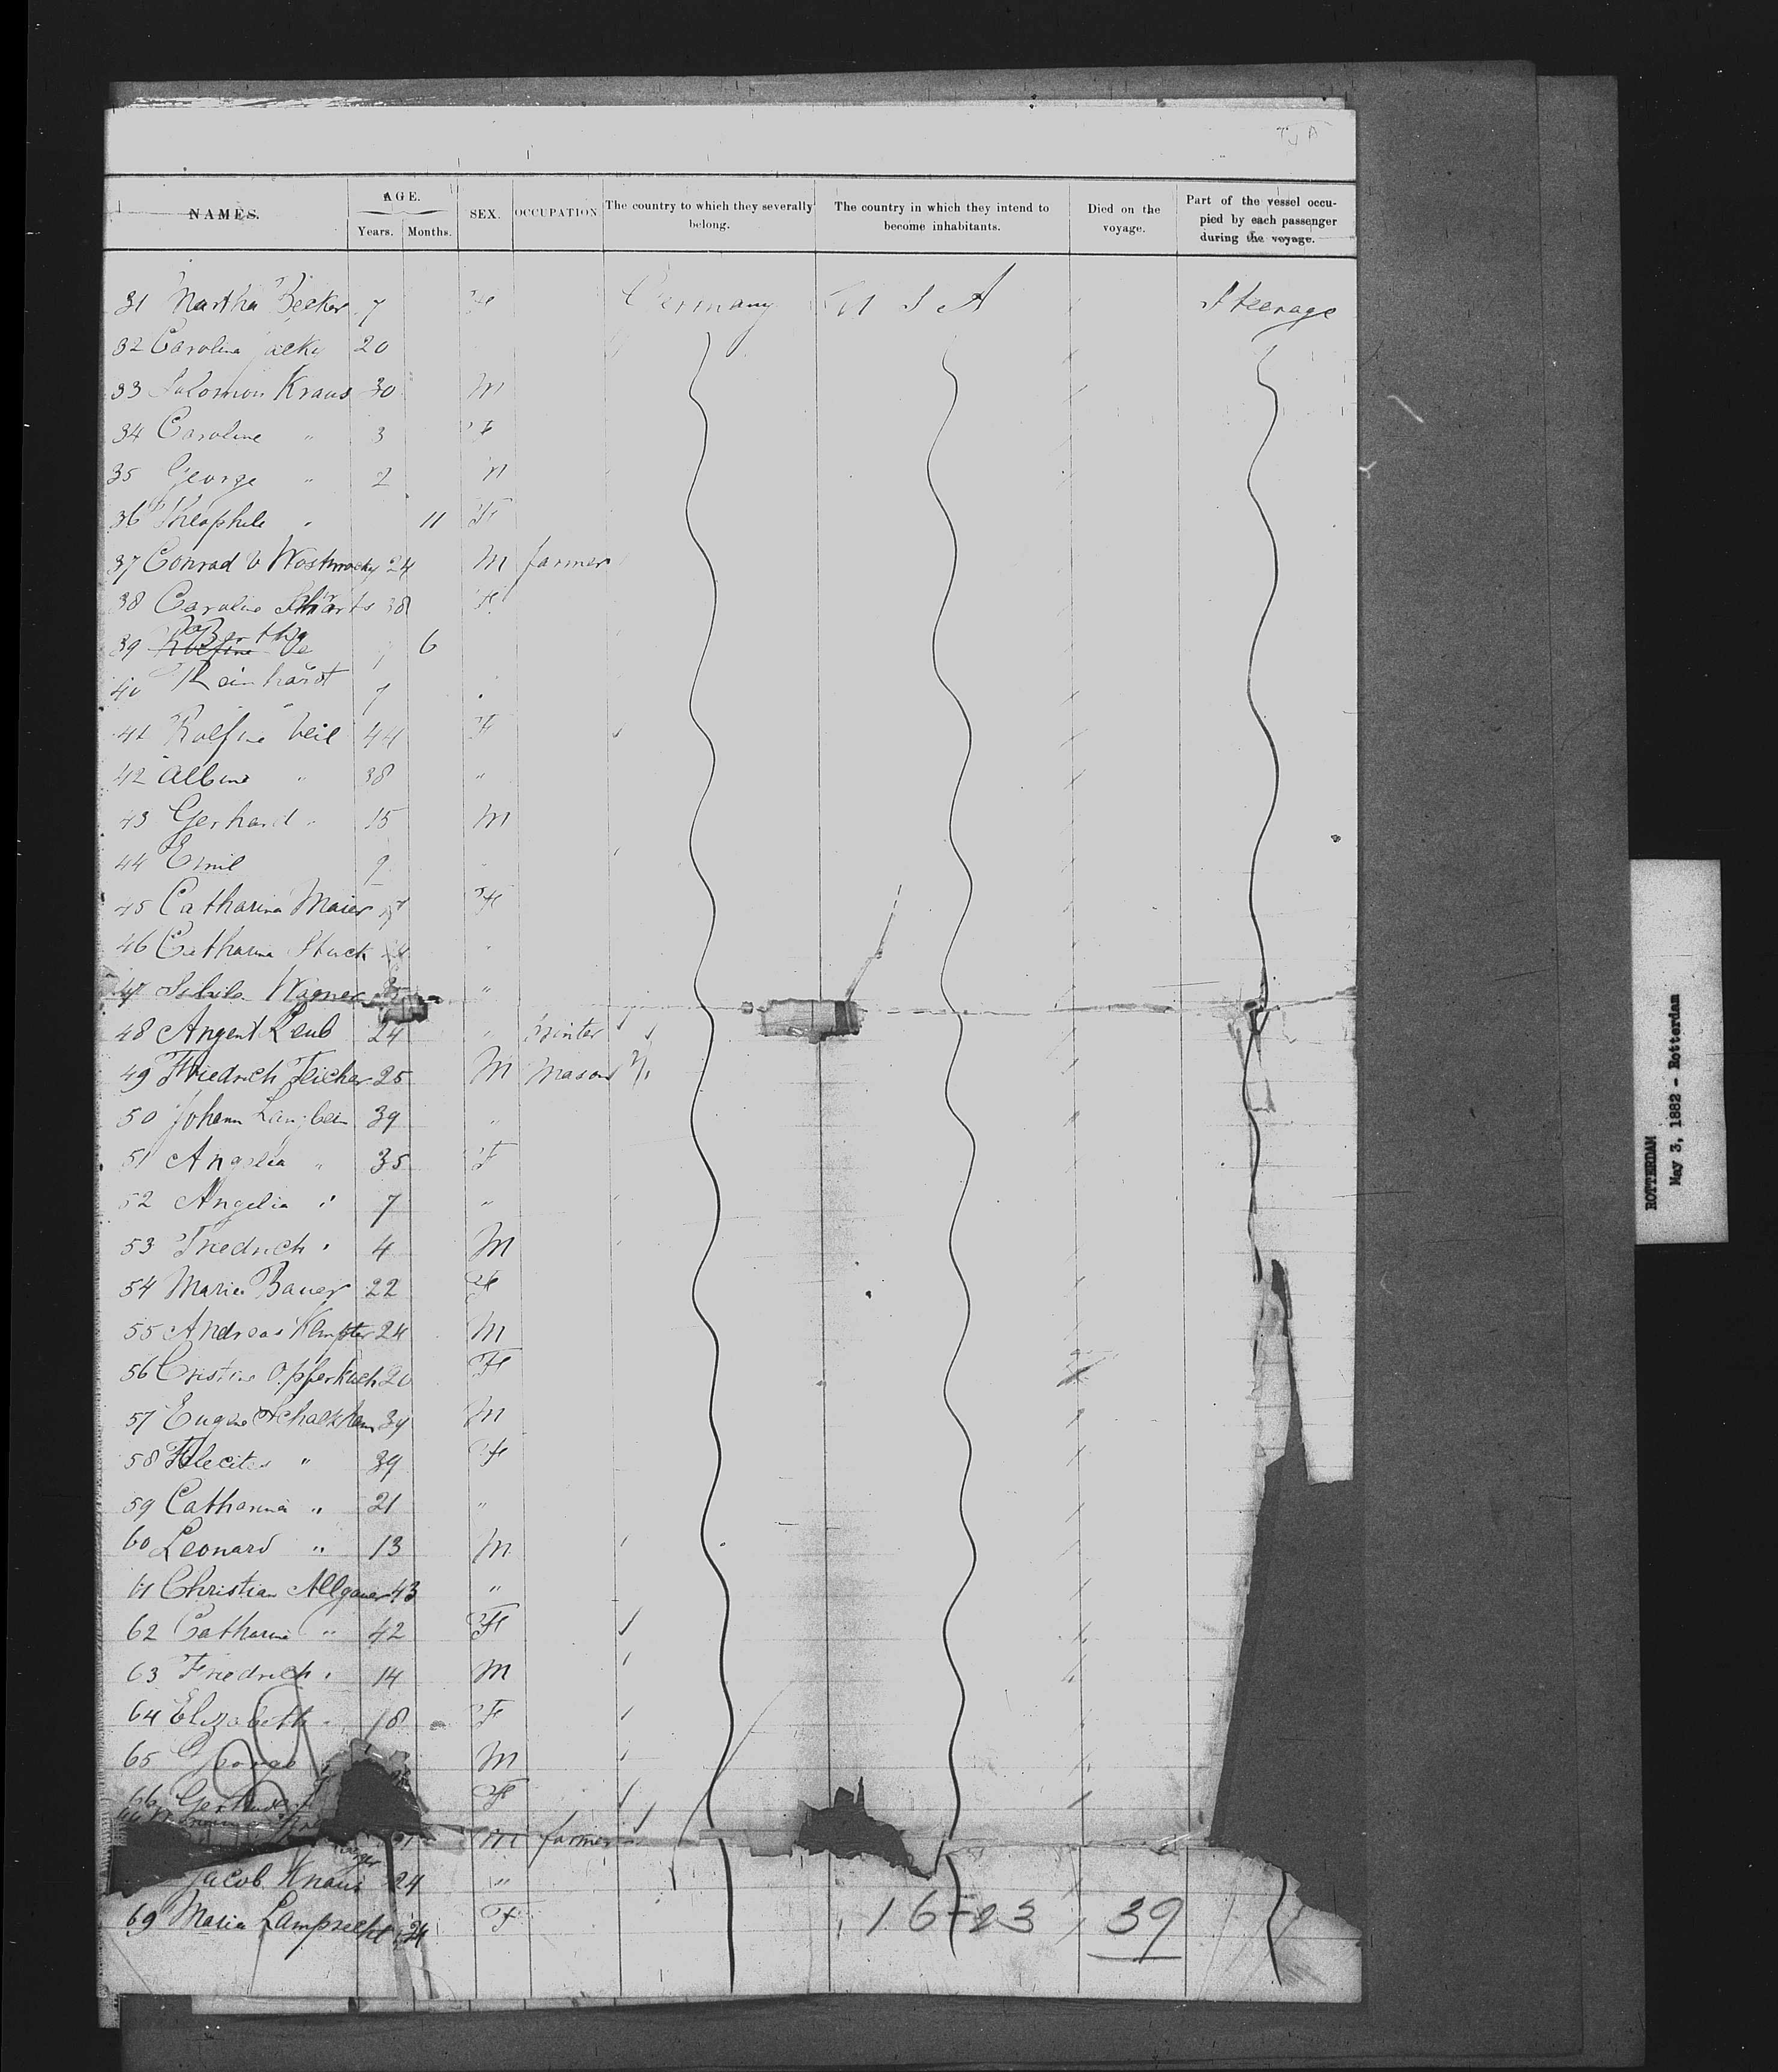 NAMES. AGE. Years. Months. SEX. OCCUPATION The country to which they severally belong. The country in which they intend to become inhabitants. Died on the voyage. Part of the vessel occupied by each passenger during the voyage.
31 Martha Becker 7 F Germany U S A Steerage
32 Carolina Jacky 20
33 Salomon Kraus 30 M
34 Caroline " 3 F
35 George " 2 M
36 Theophile " 11 F
37 Conrad v 24 M farmer
38 Caroline 38 F
39 Bertha 6
40 Reinhardt 7
41 Veil 44 F
42 Albine " 38 "
43 Gerhard " 15 M
44 Emil 9
45 Catharina Maier F
46 Catharina Stuck "
47 Wagner "
48 24 "
49 Friedrich 25 M Mason
50 Johann Langbein 39 "
51 Angelia " 35 F
52 Angelia " 7 "
53 Friedrich " 4 M
54 Maria Bauer 22 F
55 Andreas Kempter 24 M
56 Cristine 20 F
57 Eugene 39 M
58 Felecitas " 39 F
59 Catharina " 21 "
60 Leonard " 13 M
61 Christian Allgauer 43 "
62 Catharina " 42 F
63 Friedrich " 14 M
64 Elizabeth " 18 F
65 George " M
66 Gertrude F
M farmer
Jacob Knaus 24 "
69 Maria Lamprecht 24 F
16-23 39
ROTTERDAM
May 3, 1882 - Rotterdam